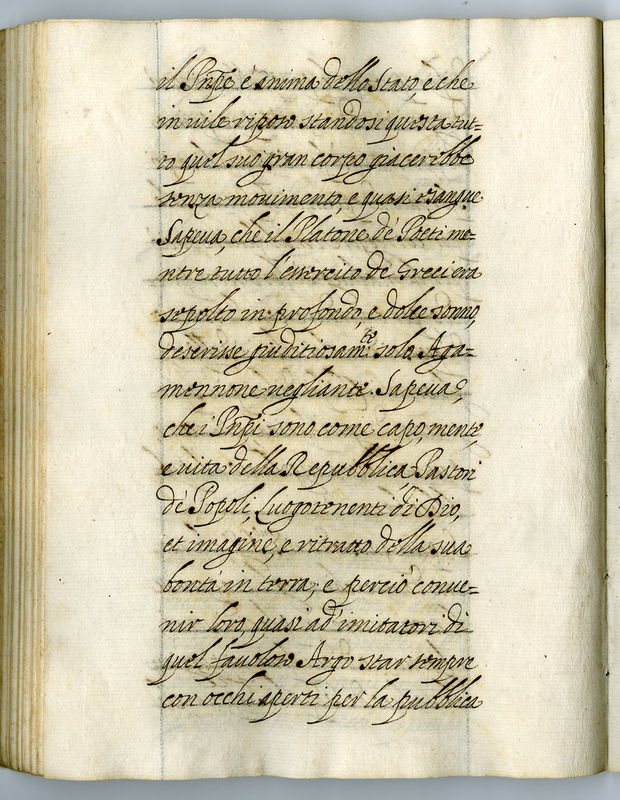 il Pñpe è anima dello Stato, e che
in vile riposo standosi questa tut=
to quel suo gran corpo giacerebbe
senza movimento, e quasi esangue
Sapeva, che il Platone de' Poeti me=
ntre tutto l'essercito de Greci era
sepolto in profondo, e dolce sonno,
descrisse giuditiosam:te solo Aga=
mennone vegliante. Sapeva,
che i Pñpi sono come capo, mente,
e vita della Repubblica, Pastori
de' Popoli, Luogotenenti di Dio,
et imagine, e ritratto della sua
bontà in terra; e perciò conve=
nir loro, quasi ad imitatori di
quel favoloso Argo star sempre
con occhi aperti per la pubblica